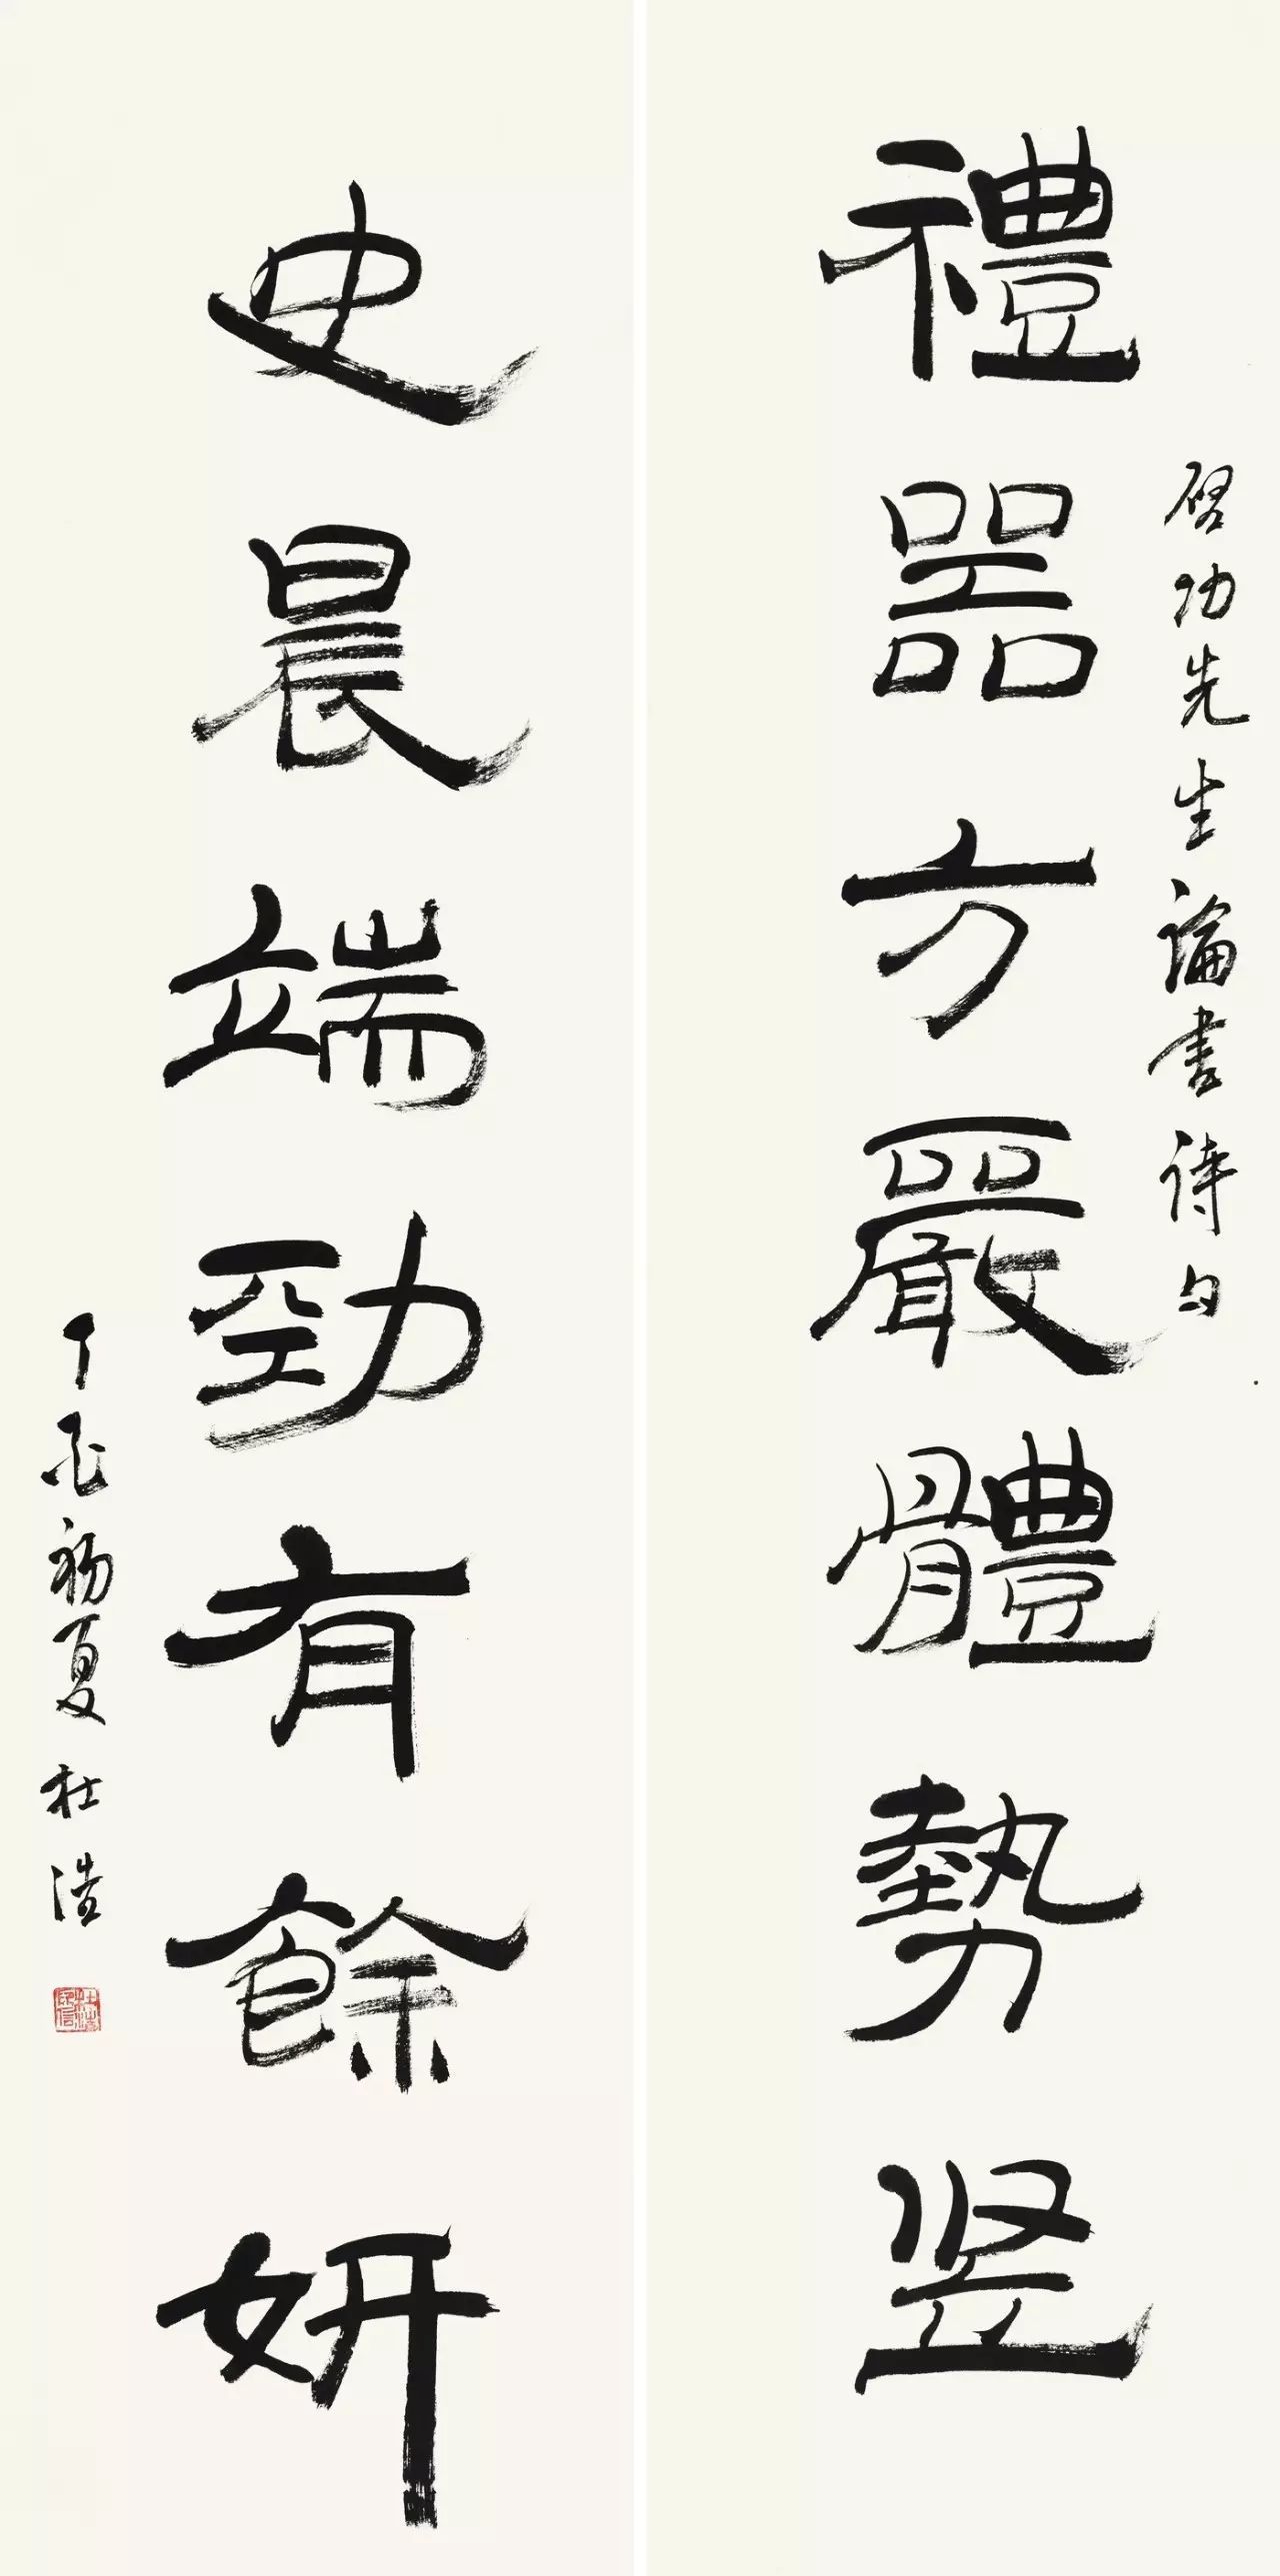 啓功先生論書詩句
禮器方嚴體勢竖
史晨端勁有餘妍
丁酉初夏杜浩